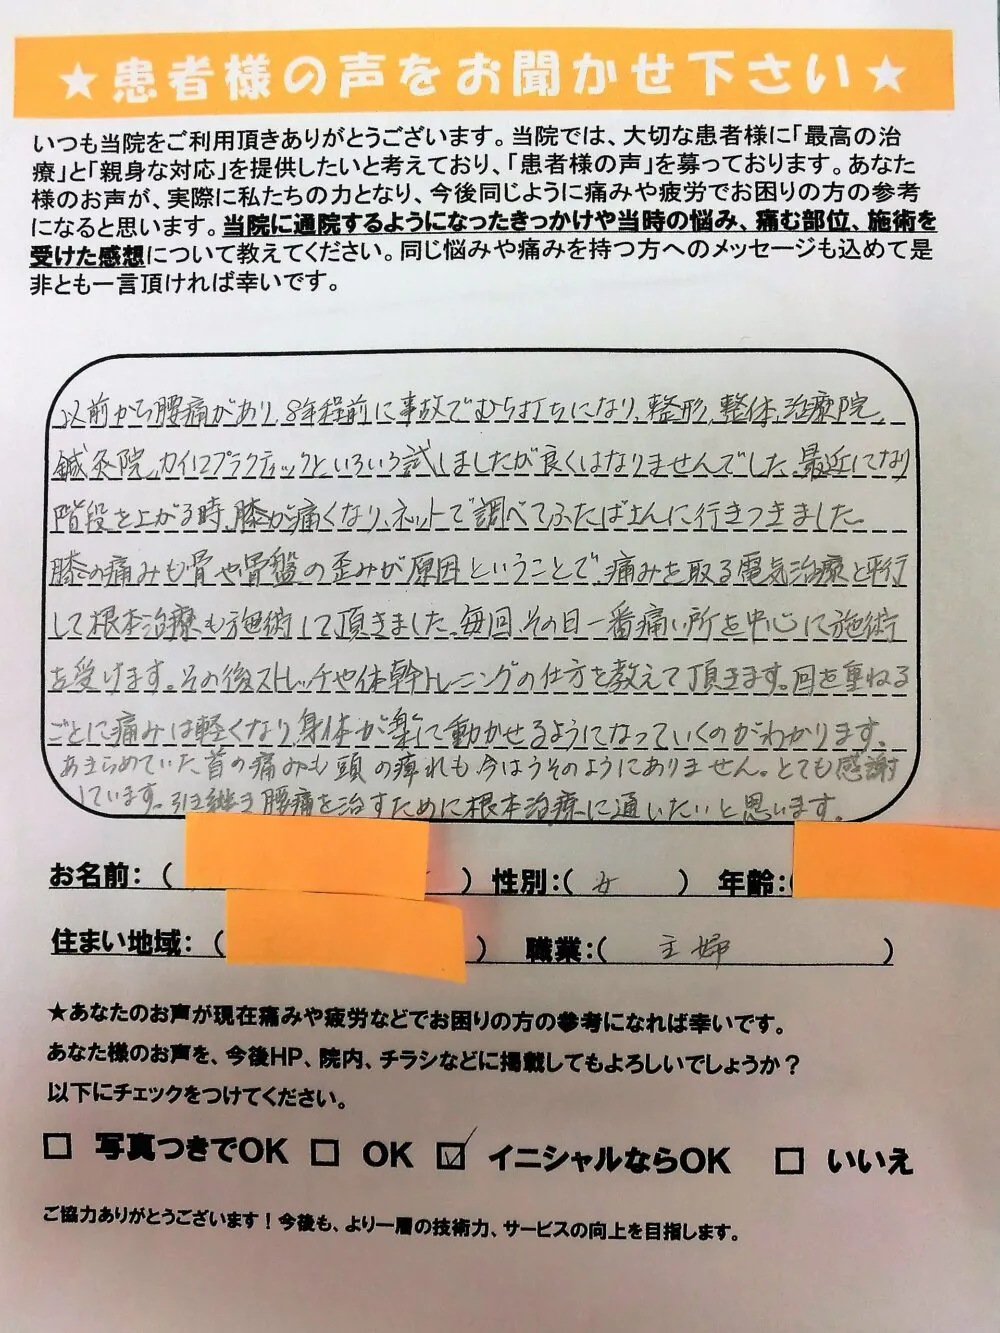 ★患者様の声をお聞かせ下さい★
いつも当院をご利用頂きありがとうございます。当院では、大切な患者様に「最高の治
療」と「親身な対応」を提供したいと考えており、「患者様の声」を募っております。あなた
様のお声が、実際に私たちの力となり、今後同じように痛みや疲労でお困りの方の参考
になると思います。当院に通院するようになったきっかけや当時の悩み、痛む部位、施術を
受けた感想について教えてください。同じ悩みや痛みを持つ方へのメッセージも込めて是
非とも一言頂ければ幸いです。
以前から腰痛があり、8年程前に事故でむち打ちになり、整形、整体、治療院、
鍼灸院、カイロプラクティックといろいろ試しましたが良くはなりませんでした。最近になり
階段を上がる時、膝が痛くなり、ネットで調べてふたばさんに行きつきました。
膝の痛みも骨や骨盤の歪みが原因ということで、痛みを取る電気治療と平行
して根本治療も施術して頂きました。毎回、その日一番痛い所を中心に施術
を受けます。その後ストレッチや体幹トレーニングの仕方を教えて頂きます。回を重ねる
ごとに痛みは軽くなり、身体が楽に動かせるようになっていくのがわかります。
あきらめていた首の痛みも頭の痺れも今はうそのようにありません。とても感謝
しています。引き継き腰痛を治すために根本治療に通いたいと思います。
お名前：（ ） 性別：（ 女 ） 年齢：（
住まい地域：（ ） 職業：（ 主婦 ）
★あなたのお声が現在痛みや疲労などでお困りの方の参考になれば幸いです。
あなた様のお声を、今後HP、院内、チラシなどに掲載してもよろしいでしょうか？
以下にチェックをつけてください。
□ 写真つきでOK □ OK ☑ イニシャルならOK □ いいえ
ご協力ありがとうございます！今後も、より一層の技術力、サービスの向上を目指します。